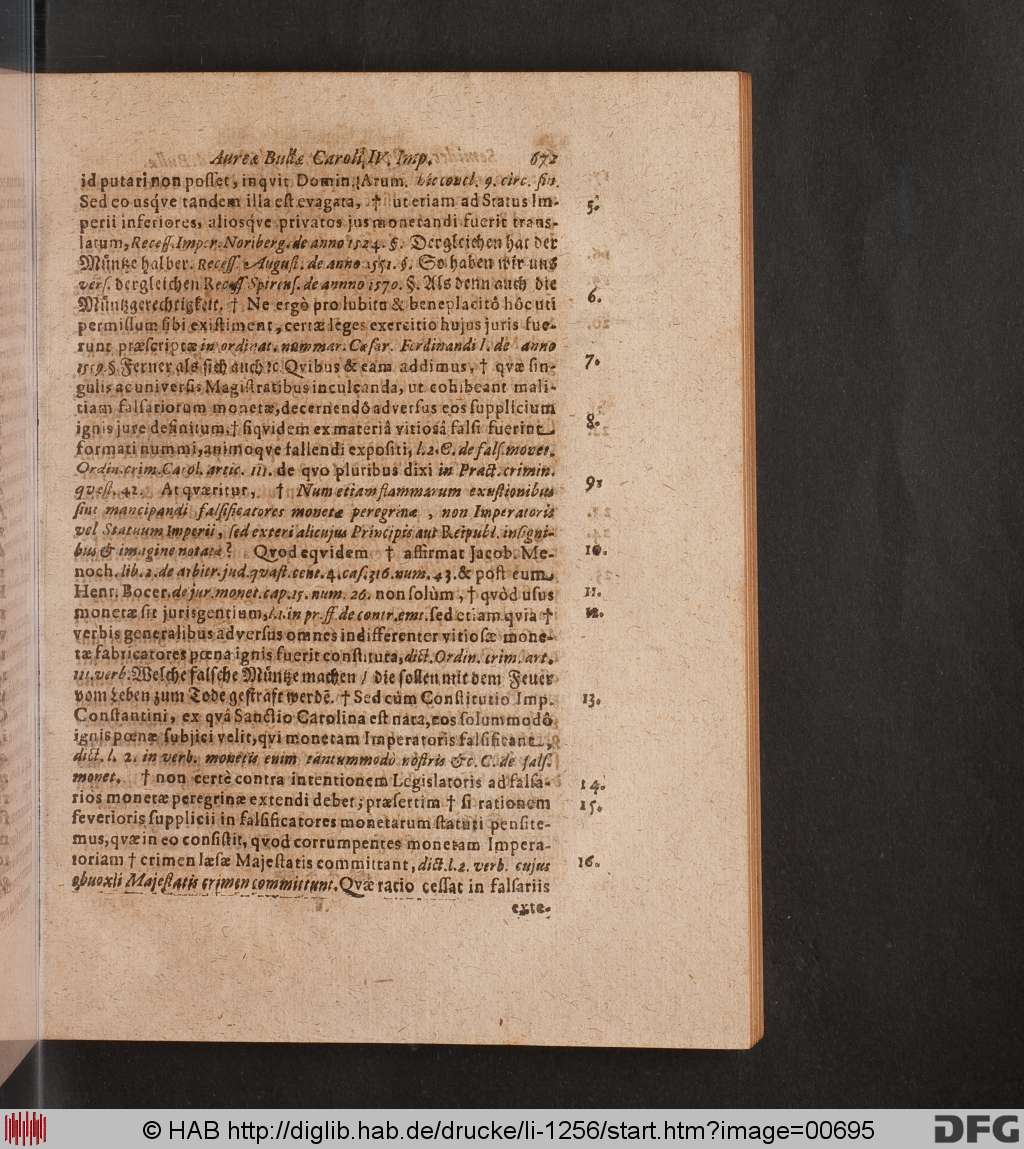 Aureæ Bullæ Caroli IV. Imp. 672
id putari non posset, inqvit Domin. Arum. hic concl. 9. circ. fin.
Sed eo usqve tandem illa est evagata, † ut etiam ad Status Im- 5.
perii inferiores, aliosqve privatos jus monetandi fuerit trans-
latum, Recess. Imper. Noriberg. de anno 1524. §. Dergleichen hat der
Müntze halber. Recess. August. de anno 1551. §. So haben wir uns
vers. dergleichen Recess. Spirens. de annno 1570. §. Als denn auch die
Müntzgerechtigkeit. † Ne ergò pro lubitu & beneplacitô hôc uti 6.
permissum sibi existiment, certæ lêges exercitio hujus juris fue-
runt præscriptæ in ordinat. nummar. Cæsar. Ferdinandi I. de anno
1559. § Ferner als sich auch ꝛc Qvibus & eam addimus, † qvæ sin- 7.
gulis ac universis Magistratibus inculcanda, ut cohibeant mali-
tiam falsariorum monetæ, decernendô adversus eos supplicium
ignis jure definitum, † siqvidem ex materiâ vitiosâ falsi fuerint 8.
formati nummi, animoqve fallendi expositi, l. 2. C. de fals. monet.
Ordin. crim. Carol. artic. 111. de qvo pluribus dixi in Pract. crimin.
quest. 42. At qværitur, † Num etiam flammarum exustionibus 9.
sint mancipandi falsificatores monetæ peregrinæ, non Imperatoris
vel Statuum Imperii, sed exteri alicujus Principis aut Reipubl. insigni-
bus & imagine notatæ? Qvod eqvidem † affirmat Jacob. Me- 10.
noch. lib. 2. de arbitr. jud. quæst. cent. 4. cas. 316. num. 43. & post eum
Henr. Bocer. de jur. monet. cap. 15. num. 26. non solùm, † qvòd usus 11.
monetæ sit jurisgentium, l. 1. in pr. ff. de contr. emt. sed etiam qvia † 12.
verbis generalibus adversus omnes indifferenter vitiosæ mone-
tæ fabricatores pœna ignis fuerit constituta, dict. Ordin. crim. art.
111. verb. Welche falsche Müntze machen / die sollen mit dem Feuer
vom Leben zum Tode gestrafft werdē. † Sed cùm Constitutio Imp. 13.
Constantini, ex qvâ Sanctio Carolina est nata, eos solummodô
ignis pœnæ subjici velit, qvi monetam Imperatoris falsificant,
dict. l. 2. in verb. monetis enim tantummodò nôstris &c. C. de fals.
monet. † non certè contra intentionem Legislatoris ad falsa- 14.
rios monetæ peregrinæ extendi debet, præsertim † si rationem 15.
severioris supplicii in falsificatores monetarum statuti pensite-
mus, qvæ in eo consistit, qvod corrumpentes monetam Impera-
toriam † crimen læsæ Majestatis committant, dict. l. 2. verb. cujus 16.
obnoxii Majestatis crimen committunt. Qvæ ratio cessat in falsariis
exte-
© HAB http://diglib.hab.de/drucke/li-1256/start.htm?image=00695
DFG